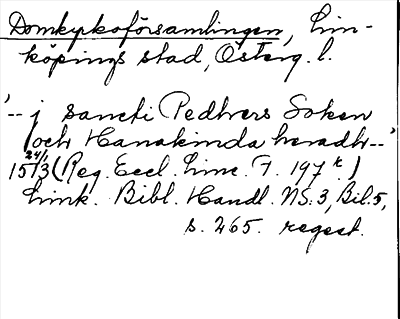 Domkyrkoförsamlingen, Lin-
köpings stad, Österg. l.
'-- j sancti Pedhers Soken
och Hanakinda heradh--'
24/1 1513 (Reg. Eccl. Linc. F. 197 r.)
Link. Bibl. Handl. NS. 3, Bil. 5,
s. 265. regest.